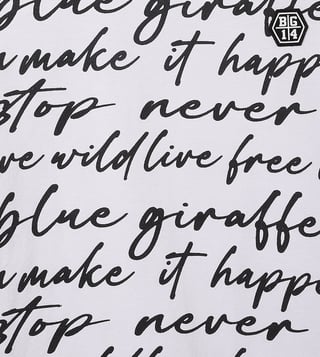 blue giraffe
BG
14
make it happ
stop never
ve wild live free
blue giraffe
make it happe
stop never